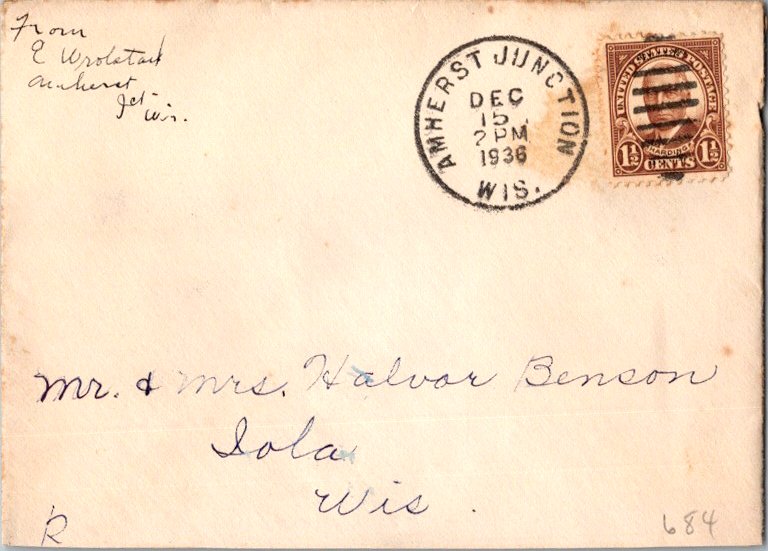 From
E Wrolstad
Amherst
Jct.
Wis.
AMHERST JUNCTION
DEC
15
2 PM
1936
WIS.
UNITED STATES POSTAGE
HARDING
1½ 1½
CENTS
Mr. & Mrs. Halvor Benson
Iola
Wis.
R
684